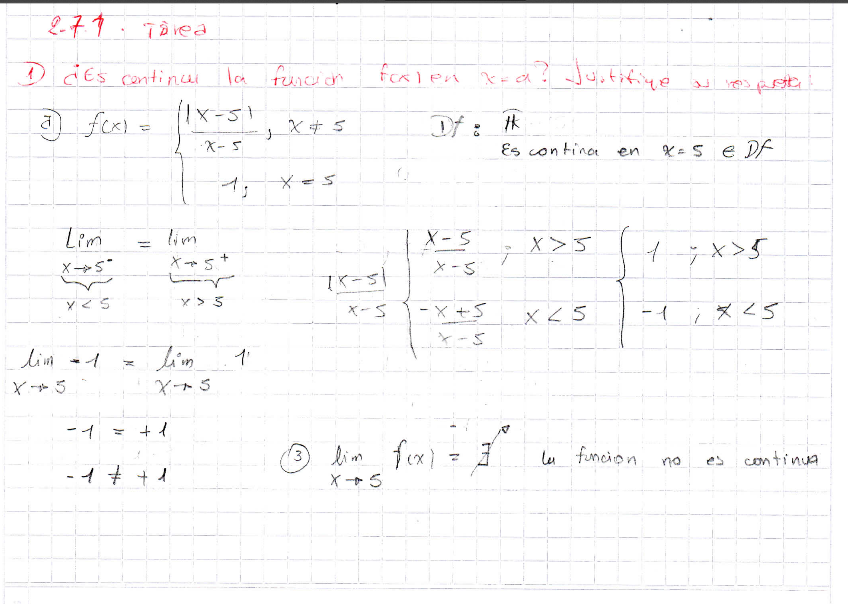 2.7.1. Tarea
1) ¿Es continua la función f(x) en x=a? Justifique su respuesta:
a) f(x) = { |x-5| / x-5 , x ≠ 5
1, x = 5
Df: ℝ
Es contina en x=5 ∈ Df
Lim x→5⁻ = lim x→5⁺
x<5 x>5
|x-5| / x-5 { x-5 / x-5 ; x>5 { 1 ; x>5
-x+5 / x-5 x<5 -1 ; x<5
lim x→5 -1 = lim x→5 1
-1 = +1
-1 ≠ +1
③ lim x→5 f(x) = ∄ la funcion no es continua